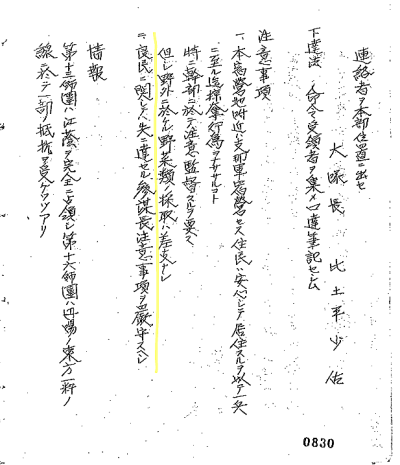 連絡者ヲ本部位置ニ出セ
大隊長 比土平少佐
下達法 命令受領者ヲ集メ口達筆記セシム
注意事項
一、本宿営地附近ハ支那軍宿営セス住民ハ安心シテ居住スルヲ以テ一兵
ニ至ル迄掠奪行為ヲナササルコト
特ニ幹部ニ於テ注意監督スルヲ要ス
但シ野外ニ於ケル野菜類ノ採取ハ差支ナシ
二、良民ニ関シテハ先ニ達セル参謀長注意事項ヲ厳守スヘシ
情報
第十三師團ハ江陰ヲ完全ニ占領シ第十六師團ハ丹陽東方一粁ノ
線ニ於テ一部ノ抵抗ヲ受ケツツアリ
0830